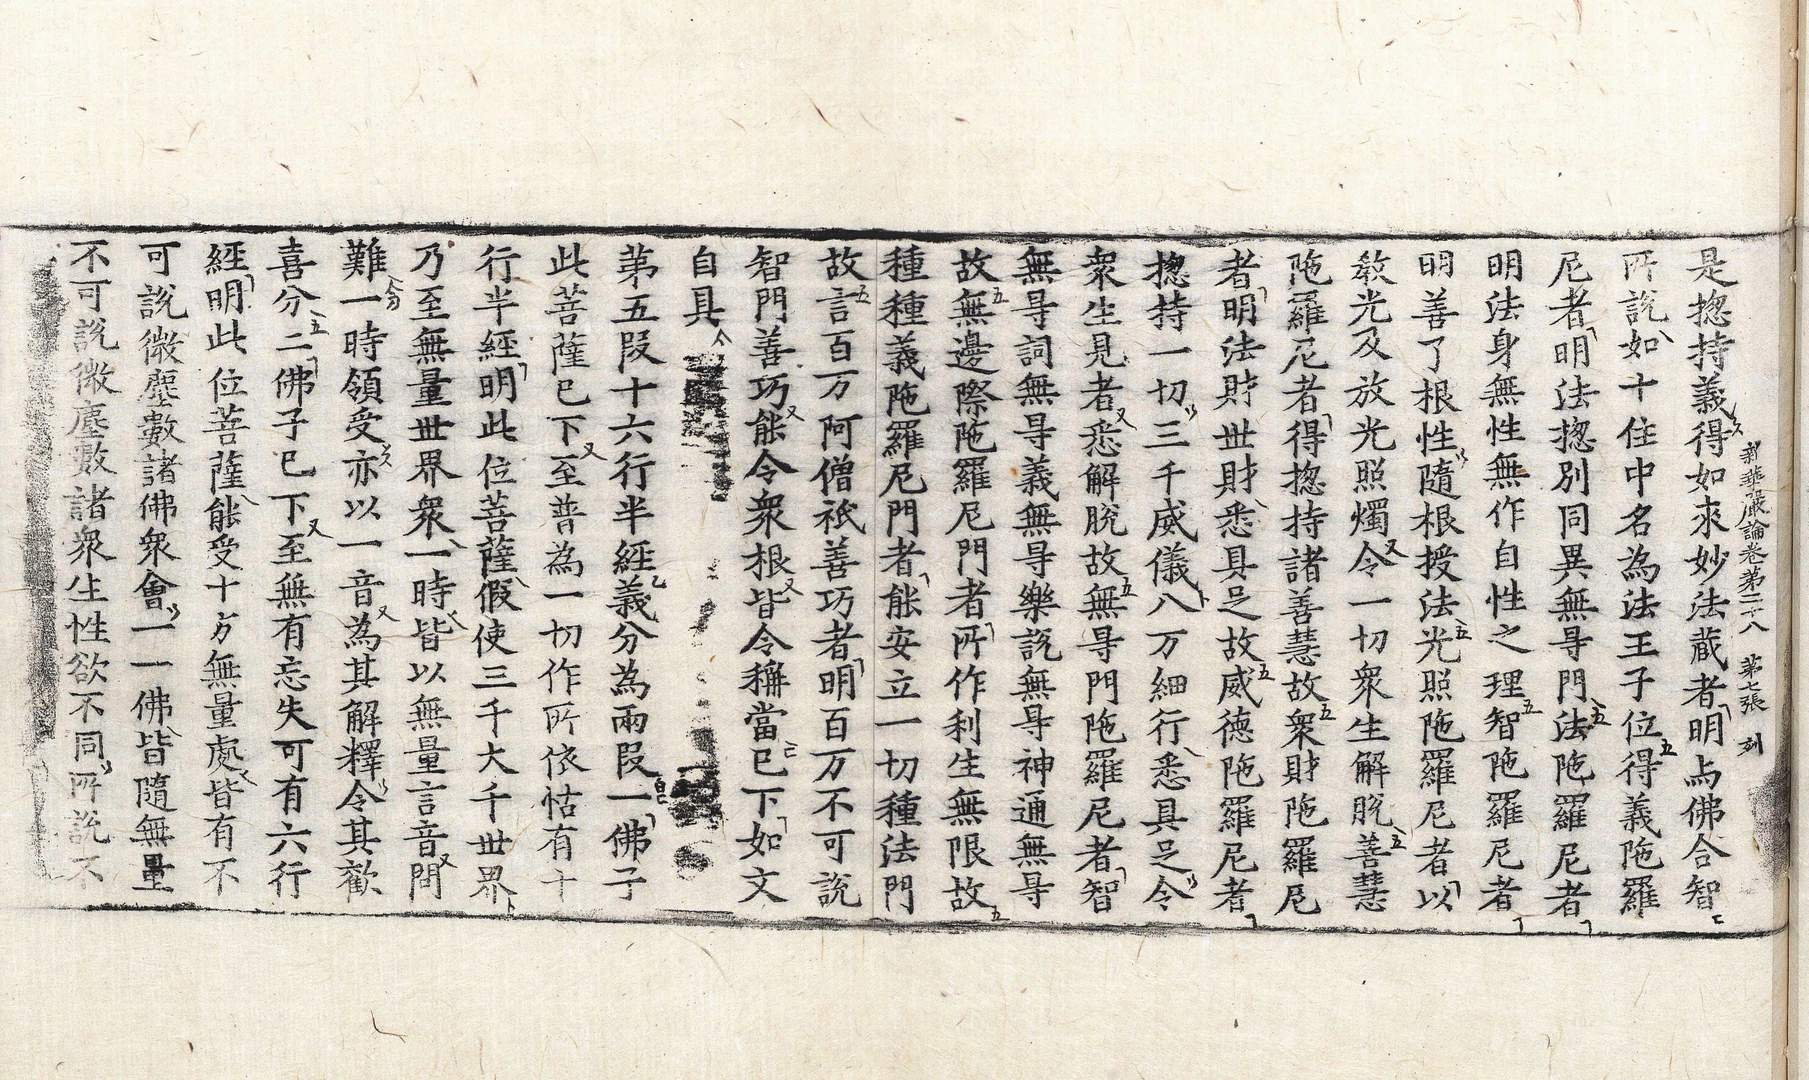 新華嚴論卷第二十八 第七張 列
是揔持義得如來妙法蔵者明与佛合智
所說如十住中名為法王子位得義陁羅
尼者明法揔別同異無㝵門法陁羅尼者
明法身無性無作自性之理智陁羅尼者
明善了根性隨根授法光照陁羅尼者以
教光及放光照燭令一切衆生解脫善慧
陁羅尼者得揔持諸善慧故衆財陁羅尼
者明法財世財悉具足故威德陁羅尼者
揔持一切三千威儀八万細行悉具足令
衆生見者悉解脫故無㝵門陁羅尼者智
無㝵詞無㝵義無㝵樂說無㝵神通無㝵
故無邊際陁羅尼門者所作利生無限故
種種義陁羅尼門者能安立一切種法門
故言百万阿僧祇善巧者明百万不可說
智門善巧能令衆根皆令稱當已下如文
自具
第五段十六行半經義分為兩段一佛子
此菩薩已下至普為一切作所依怙有十
行半經明此位菩薩假使三千大千世界
乃至無量世界衆一時皆以無量言音問
難一時領受亦以一音為其解釋令其歡
喜分二佛子已下至無有忘失可有六行
經明此位菩薩能受十方無量處皆有不
可說微塵數諸佛衆會一一佛皆隨無量
不可說微塵數諸衆生性欲不同所說不